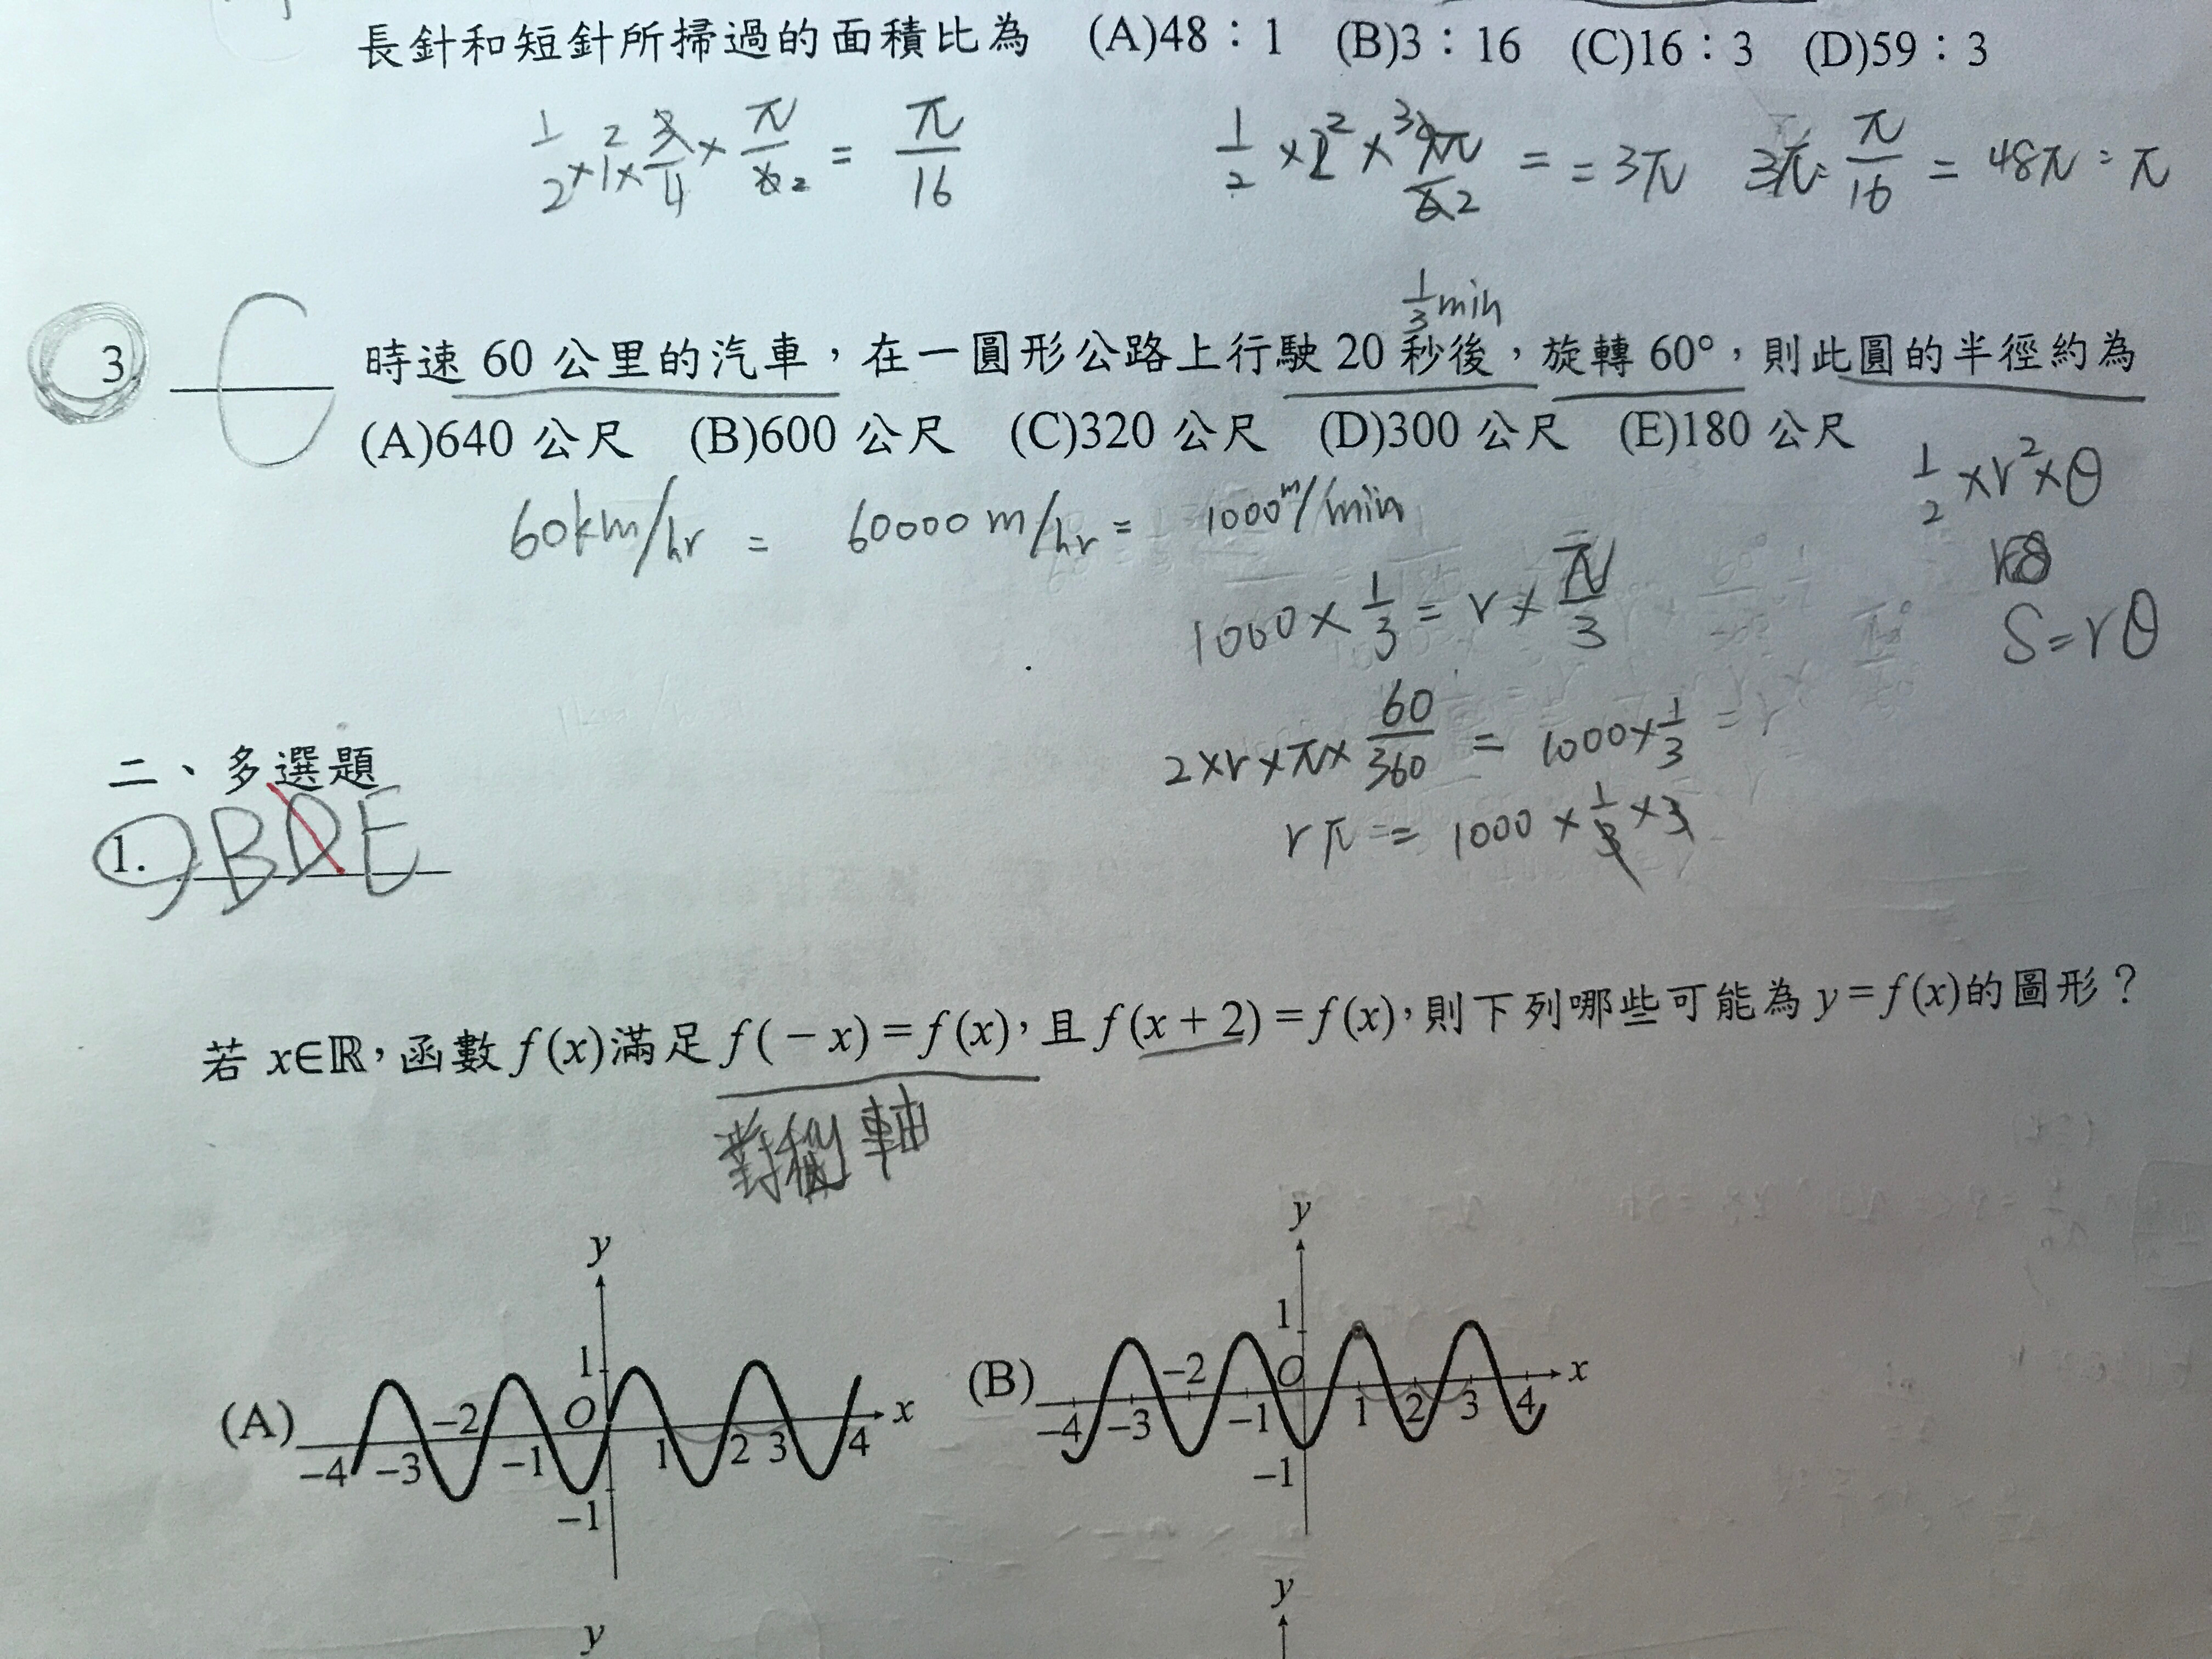 長針和短針所掃過的面積比為 (A)48：1 (B)3：16 (C)16：3 (D)59：3
= π/16
= = 3π 3π : π/16 = 48π : π
1/3 min
3 C 時速 60 公里的汽車，在一圓形公路上行駛 20 秒後，旋轉 60°，則此圓的半徑約為
(A)640 公尺 (B)600 公尺 (C)320 公尺 (D)300 公尺 (E)180 公尺
1/2 × r² × θ
60km/hr = 60000 m/hr = 1000 m/min
1000 × 1/3 = r × π/3
S = rθ
2 × r × π × 60/360 = 1000 × 1/3
rπ = 1000 × 1/3 × 3
二、多選題
1. BDE
若 x∈ℝ，函數 f(x)滿足 f(－x)＝f(x)，且 f(x＋2)＝f(x)，則下列哪些可能為 y＝f(x)的圖形？
對稱軸
(A) y 1 O x -4 -3 -2 -1 1 2 3 4 -1
(B) y 1 O x -4 -3 -2 -1 1 2 3 4 -1
y
y